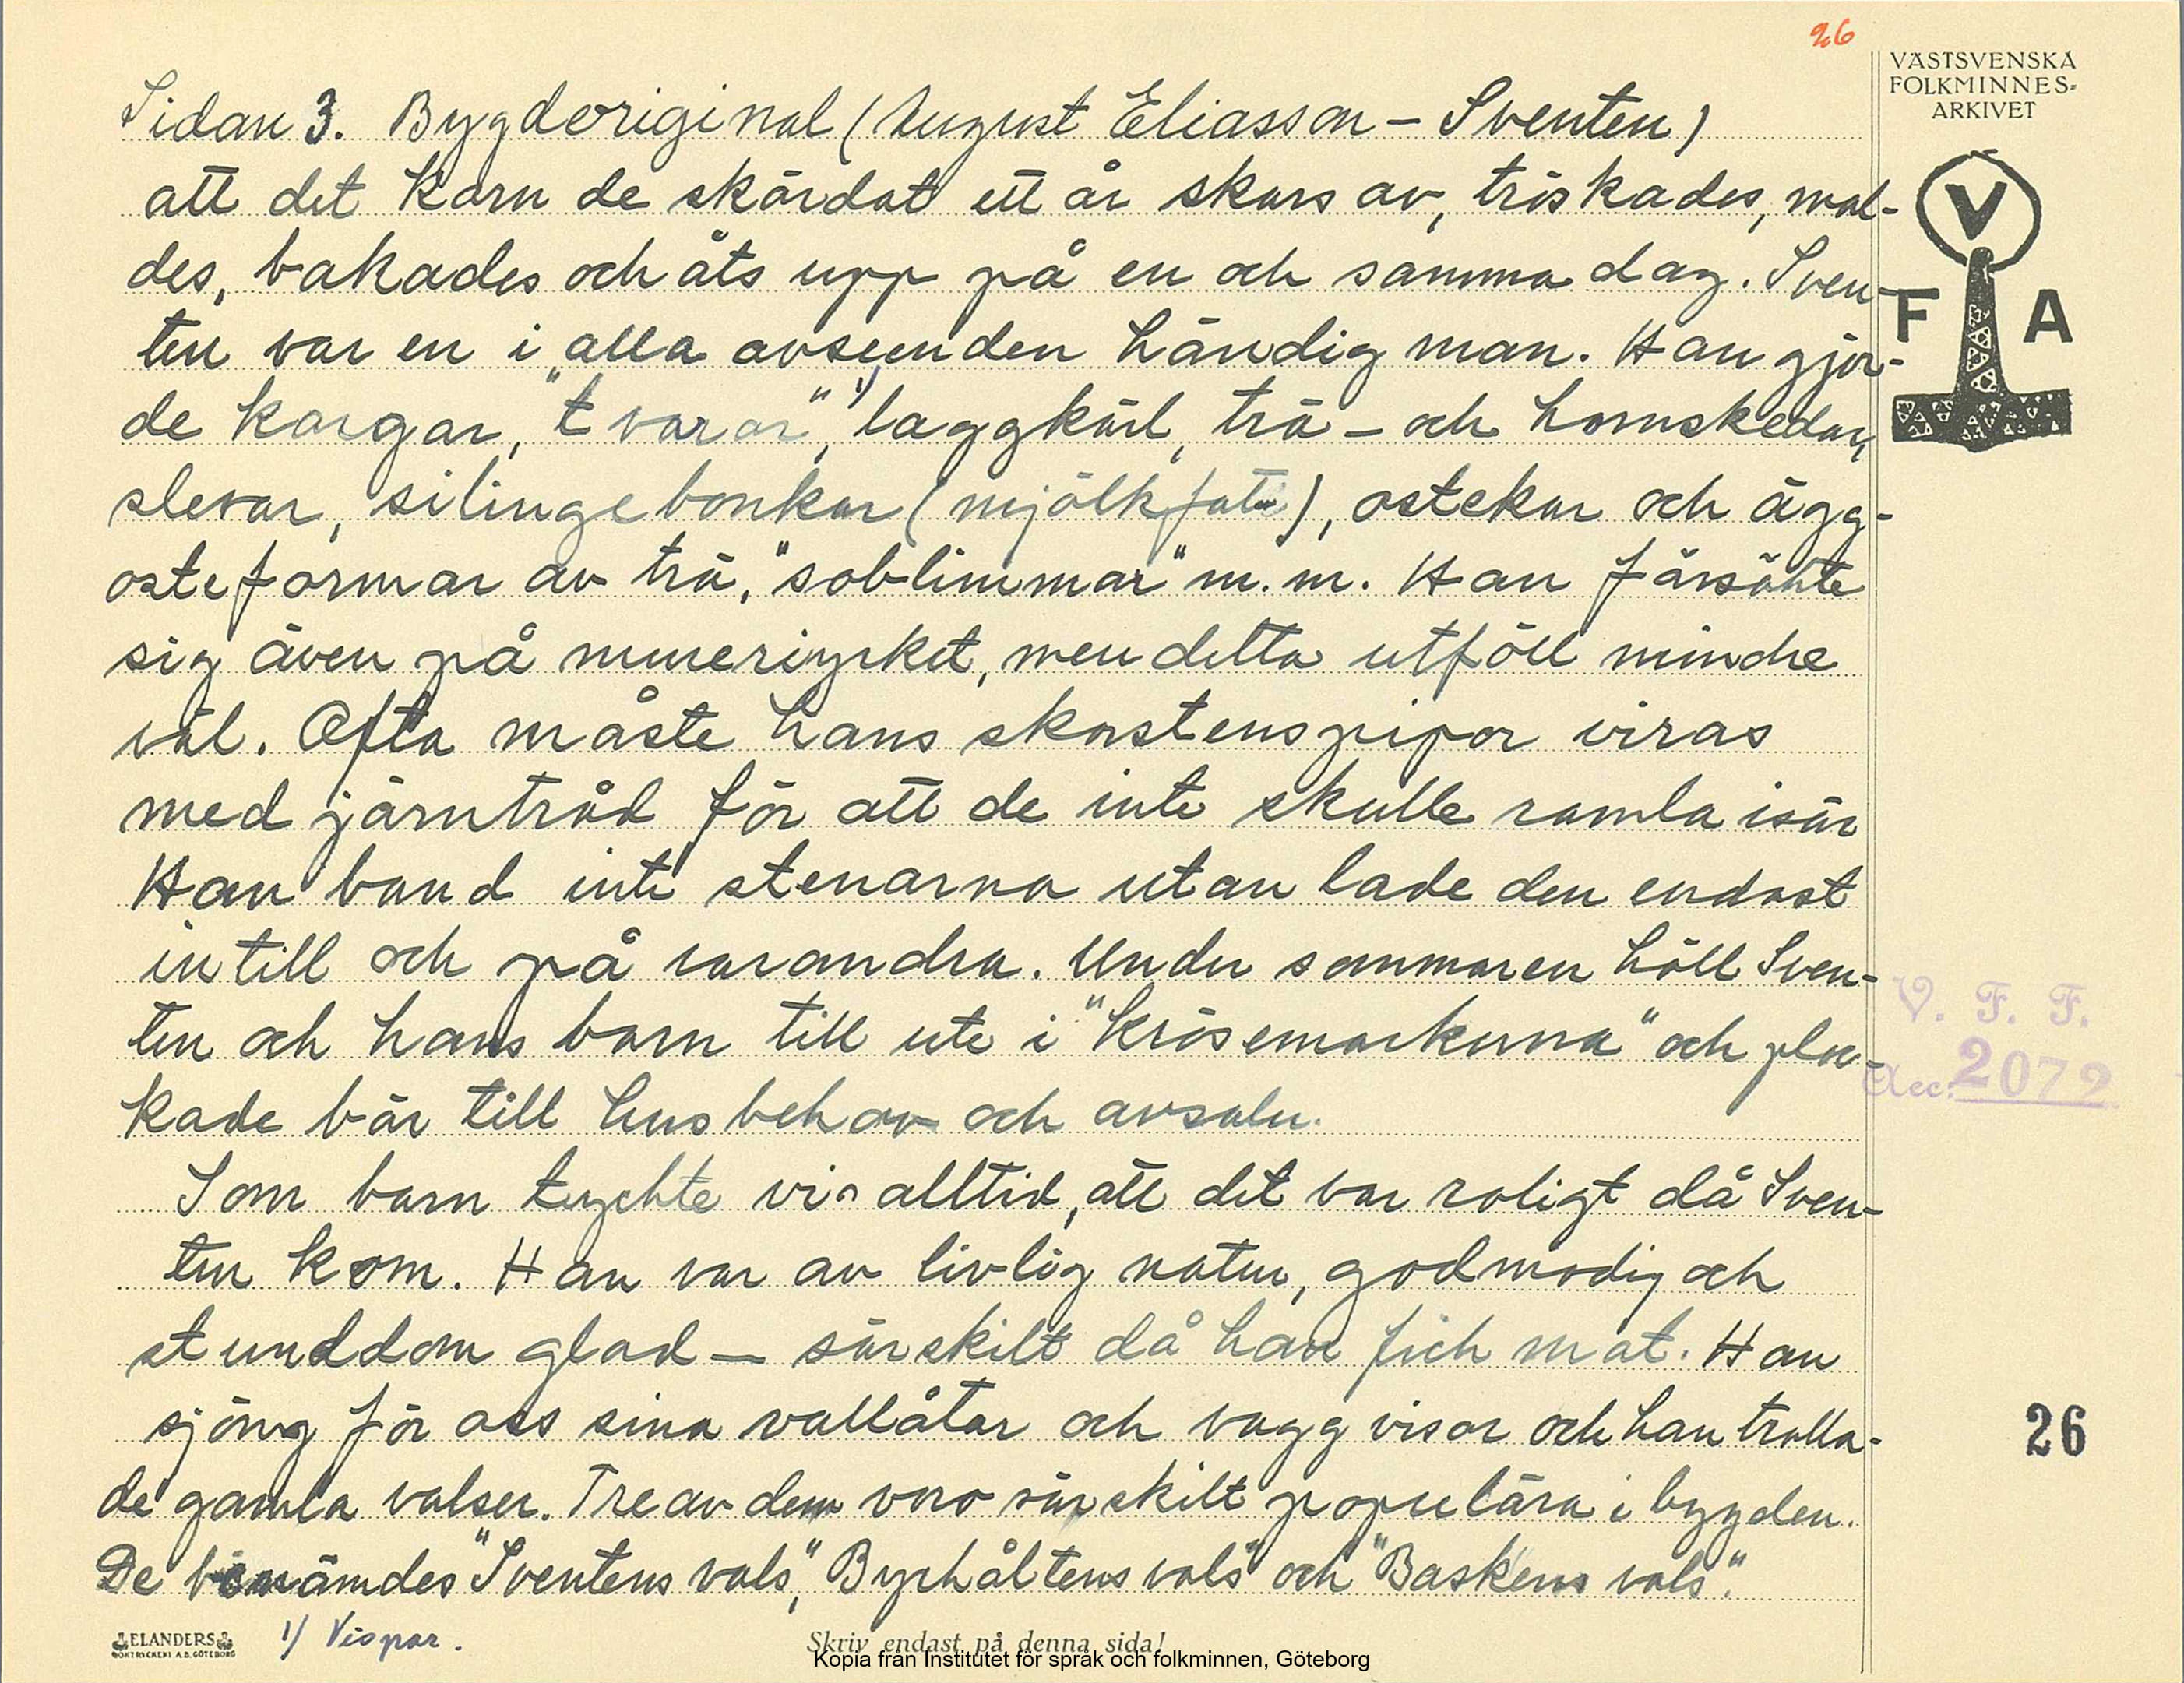 26
VÄSTSVENSKA
FOLKMINNES-
ARKIVET
V
F A
Sidan 3. Bygdeoriginal (August Eliasson - Sventen)
att det korn de skördat ett år skars av, tröskades, mal-
des, bakades och åts upp på en och samma dag. Sven-
ten var en i alla avseenden händig man. Han gjor-
de korgar, "tvaror", 1/ laggkärl, trä- och hornskedar,
slevar, silingebonkar (mjölkfat), ostekar och ägg-
osteformar av trä, "soblimmar" m.m. Han försökte
sig även på mureriyrket, men detta utföll mindre
väl. Ofta måste hans skorstenspipor viras
med järntråd för att de inte skulle ramla isär
Han band inte stenarna utan lade den endast
intill och på varandra. Under sommaren höll Sven-
ten och hans barn till ute i "krösemarkerna" och ploc-
kade bär till husbehov och avsalu.
Som barn tyckte vi alltid, att det var roligt då Sven-
ten kom. Han var av livlig natur, godmodig och
stunddom glad - särskilt då han fick mat. Han
sjöng för oss sina vallåtar och vaggvisor och han tralla-
de gamla valser. Tre av dem voro särskilt populära i bygden.
De benämdes "Sventens vals", "Byrhåltens vals" och "Baskens vals".
1/ Vispar.
V. F. F.
Acc. 2072
26
ELANDERS
BOKTRYCKERI A.B. GÖTEBORG
Skriv endast på denna sida!
Kopia från Institutet för språk och folkminnen, Göteborg